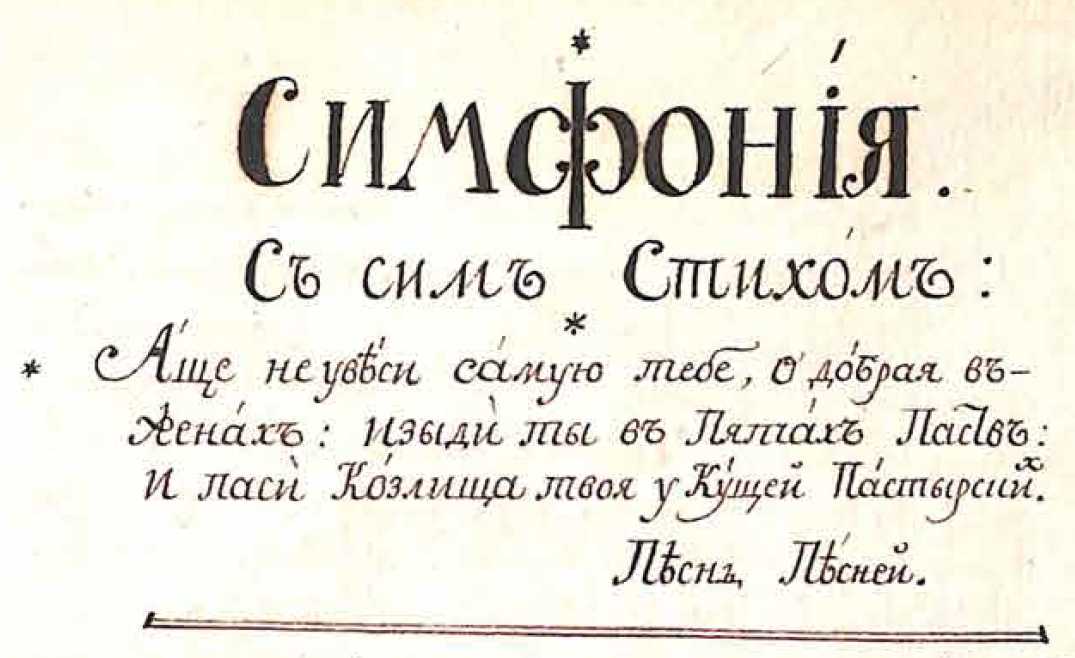 Симфонія.
Съ симъ Стихо́мъ:
* А́ще не увѣ́си са́мую тебе, о до́брая въ-
жена́хъ: изыди̇̀ ты въ Пята́хъ Паствъ:
и паси̇̀ Ко́злища твоя у Ку́щей Па́стырских.
Пѣснь, Пѣ́сней.